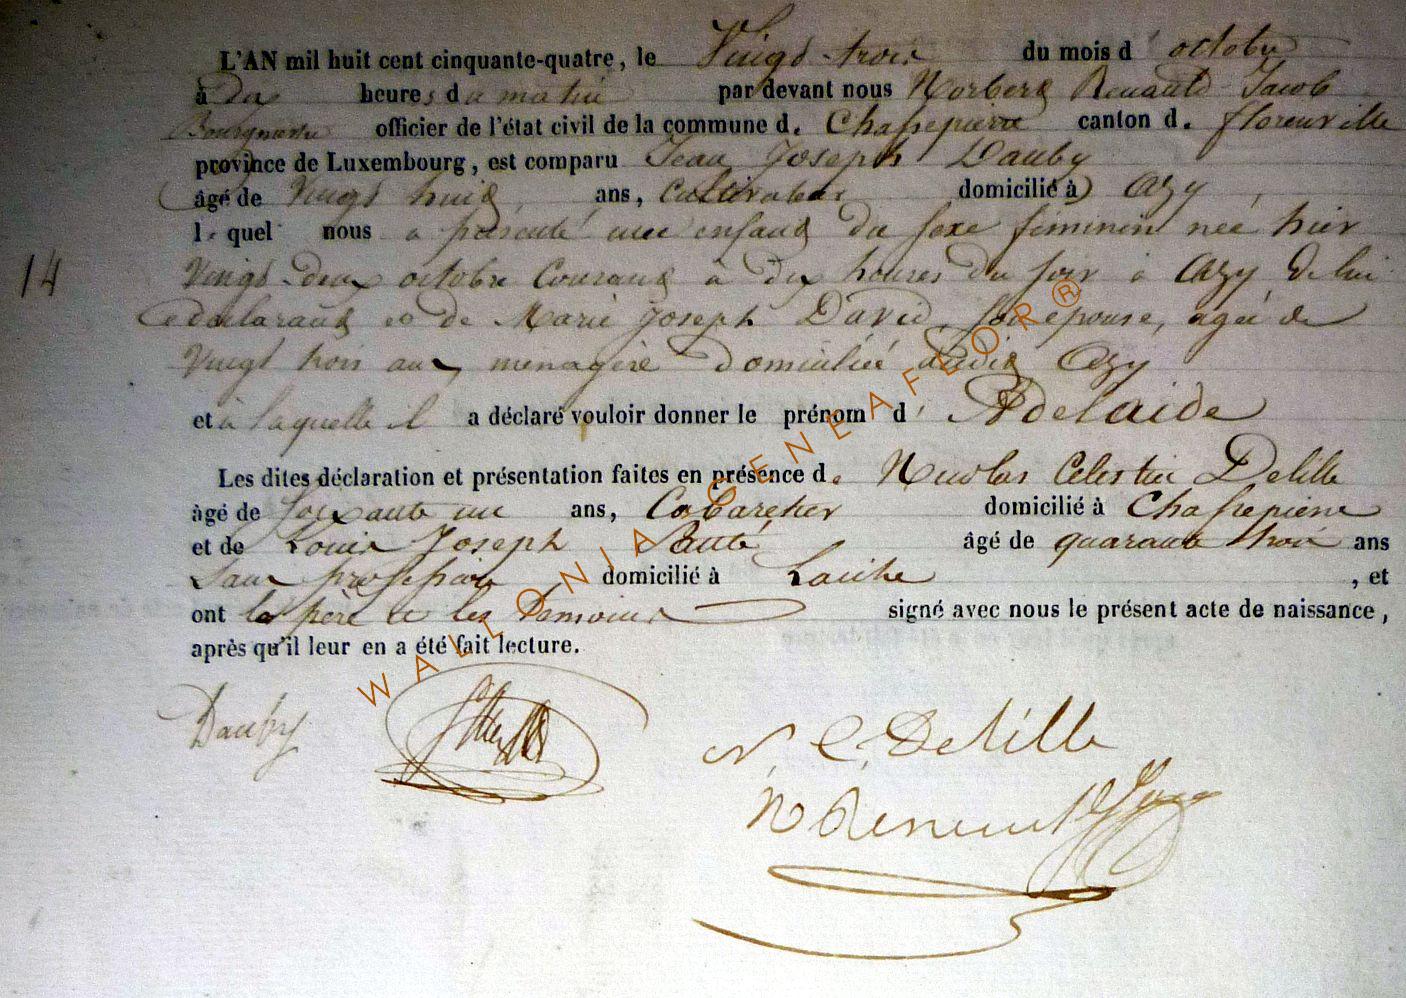 L'AN mil huit cent cinquante-quatre, le Vingt-trois du mois d'octobre
à dix heures du matin par devant nous Norbert Renauld Jacob
Bourgmestre officier de l'état civil de la commune de Chassepierre canton de florenville
province de Luxembourg, est comparu Jean Joseph Dauby
âgé de Vingt huit ans, cultivateur domicilié à Azy,
lequel nous a présenté une enfant du sexe féminin née hier
14
Vingt-deux octobre Courant à dix heures du soir à Azy de lui
declarant et de Marie Joseph David son épouse, agée de
Vingt trois ans, menagère domiciliée audit Azy
et à laquelle il a déclaré vouloir donner le prénom d'Adelaide
Les dites déclaration et présentation faites en présence de Nicolas Celestin Delille
âgé de soixante un ans, Cabaretier domicilié à Chassepierre
et de Louis Joseph âgé de quarante trois ans
sans profession domicilié à Laiche, et
ont le père et les temoins signé avec nous le présent acte de naissance,
après qu'il leur en a été fait lecture.
Dauby
N. C. Delille
N Renauld Jacob
WALLONIA GENEAFLOR®